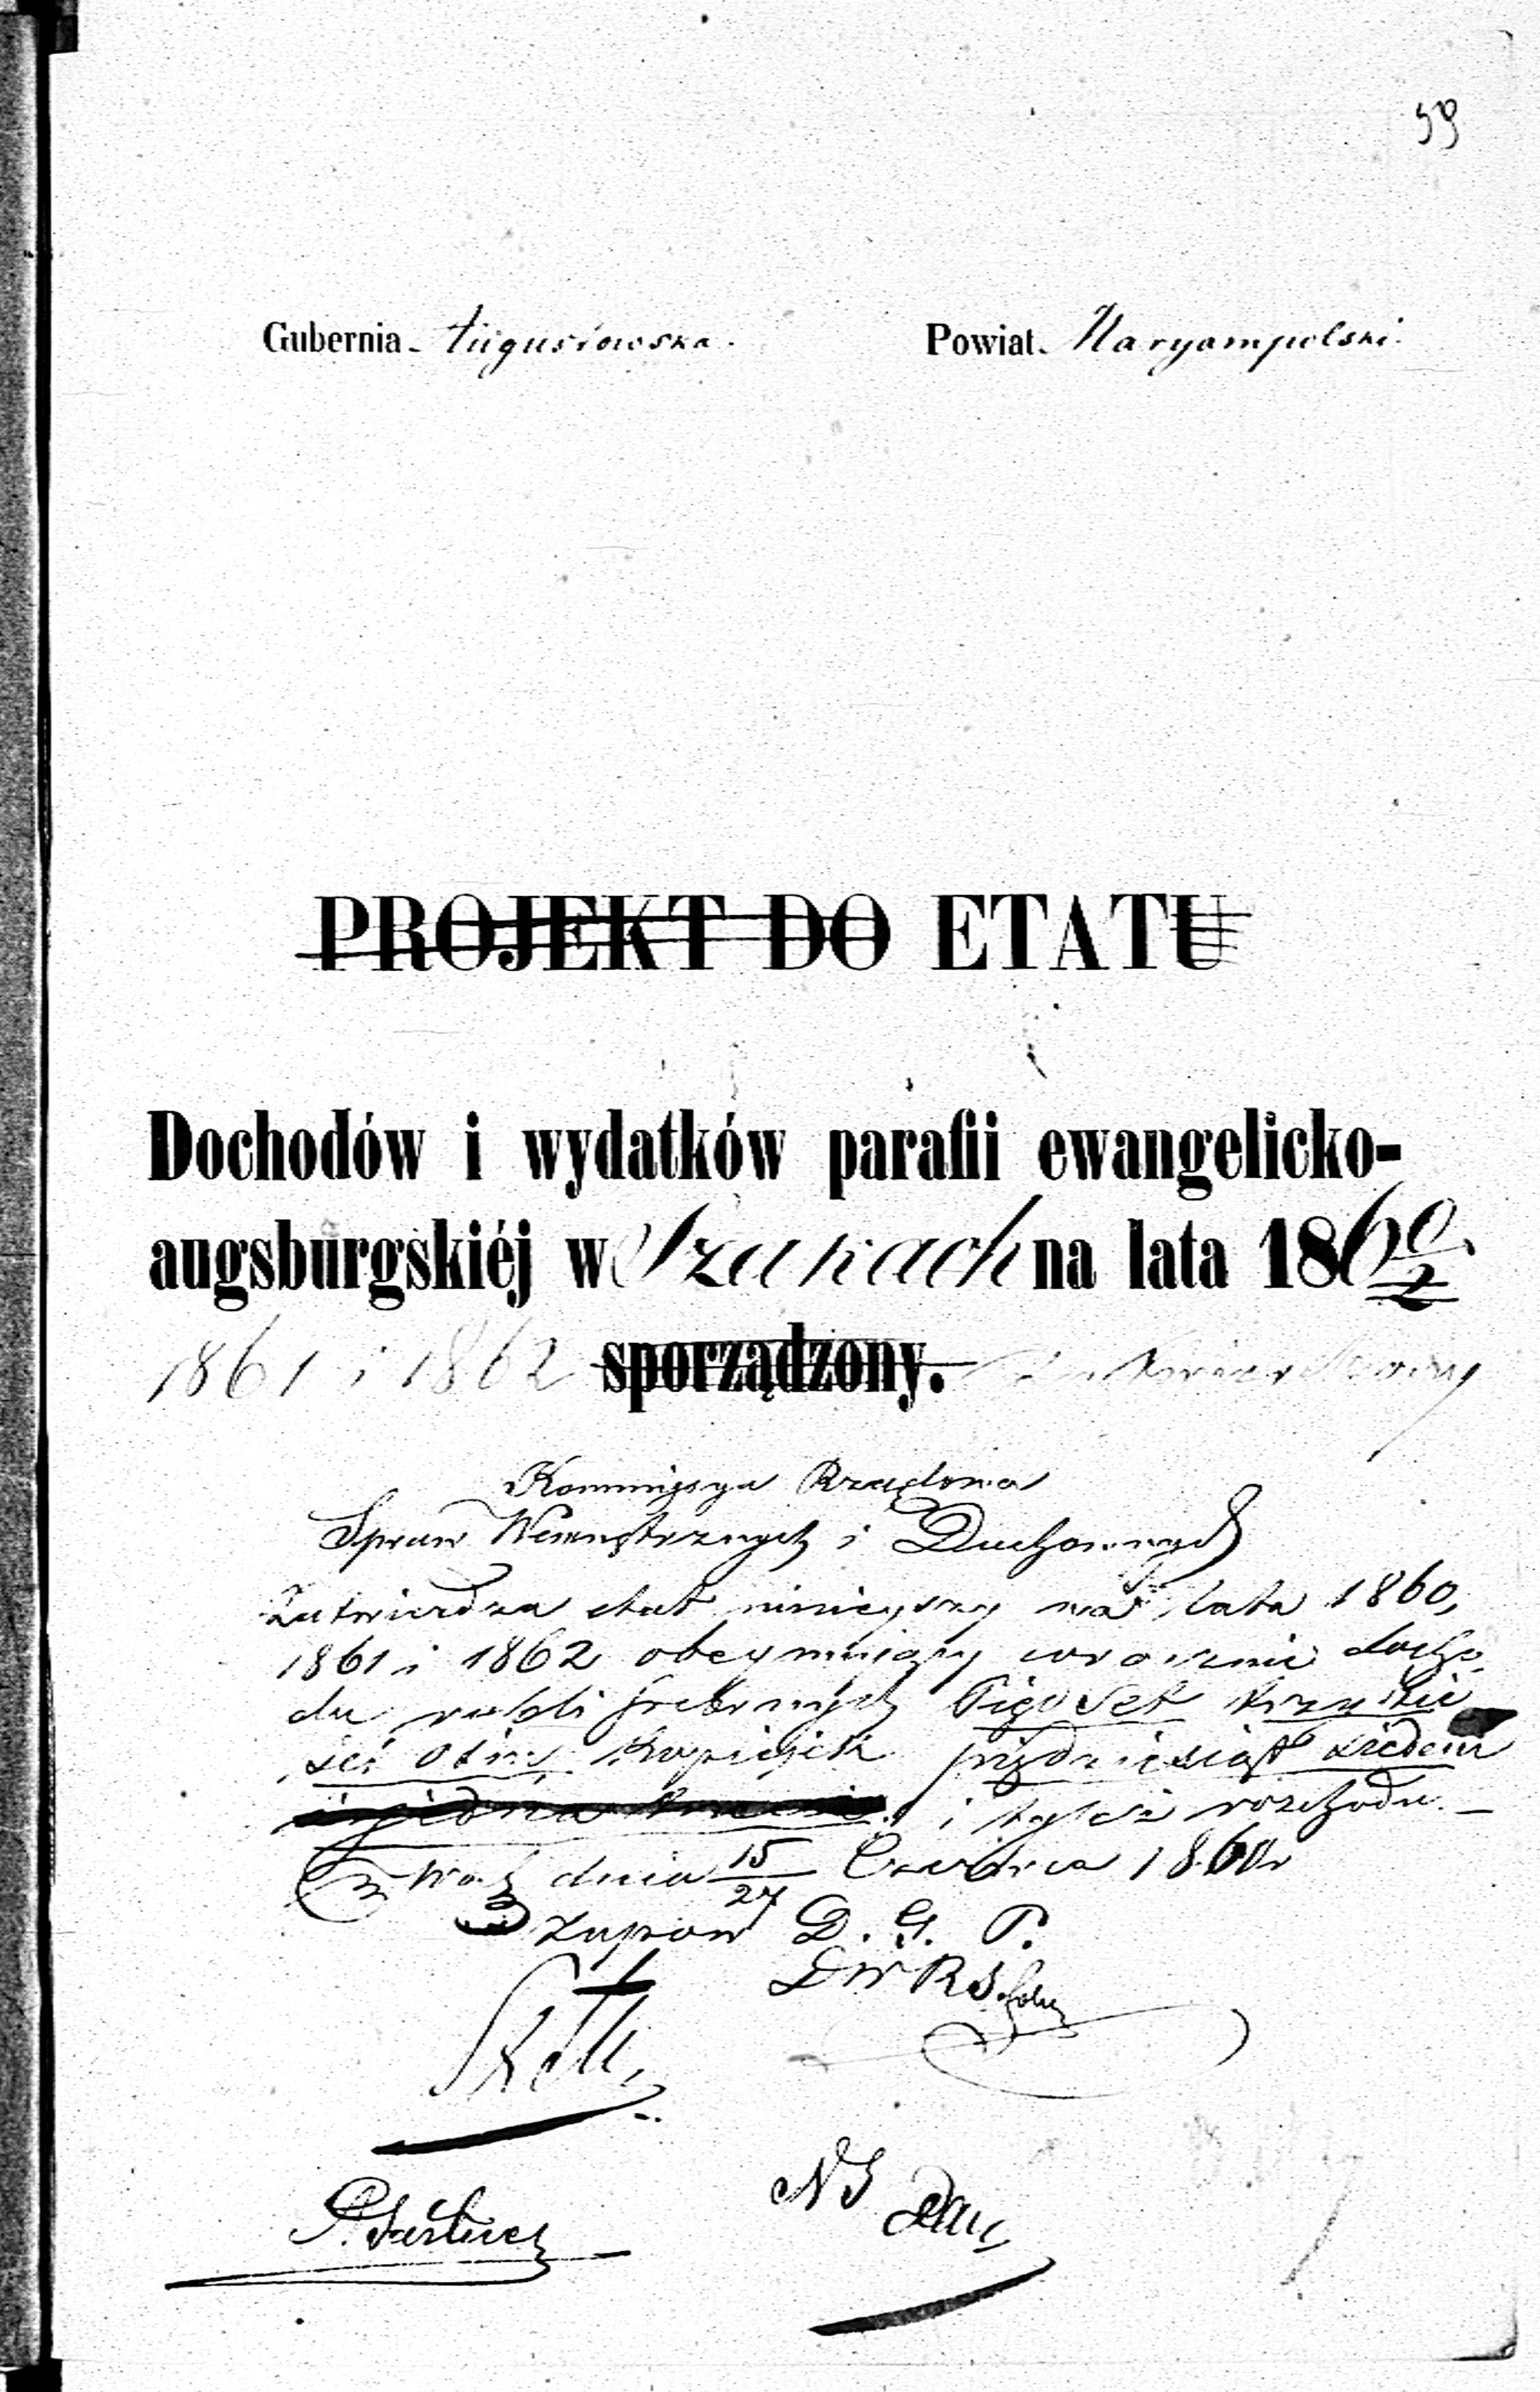 59
Gubernia Augustowska. Powiat Maryampolski.
PROJEKT DO ETATU
Dochodów i wydatków parafii ewangelicko-
augsburgskiéj w Szakach na lata 1860/2
1861 i 1862 sporządzony. Zatwierdzony
Kommissya Rządowa
Spraw Wewnętrznych i Duchownych
Zatwierdza etat niniejszy na lata 1860,
1861 i 1862 obeymuiący corocznie docho-
du rubli srebrnych Pięćset trzydzie
ści kopiejek pięćdziesiąt siedem
i tyleż rozchodu.
w War. dnia 15/27 Czerwca 1860 r
D. G. P.
D W R S
NS